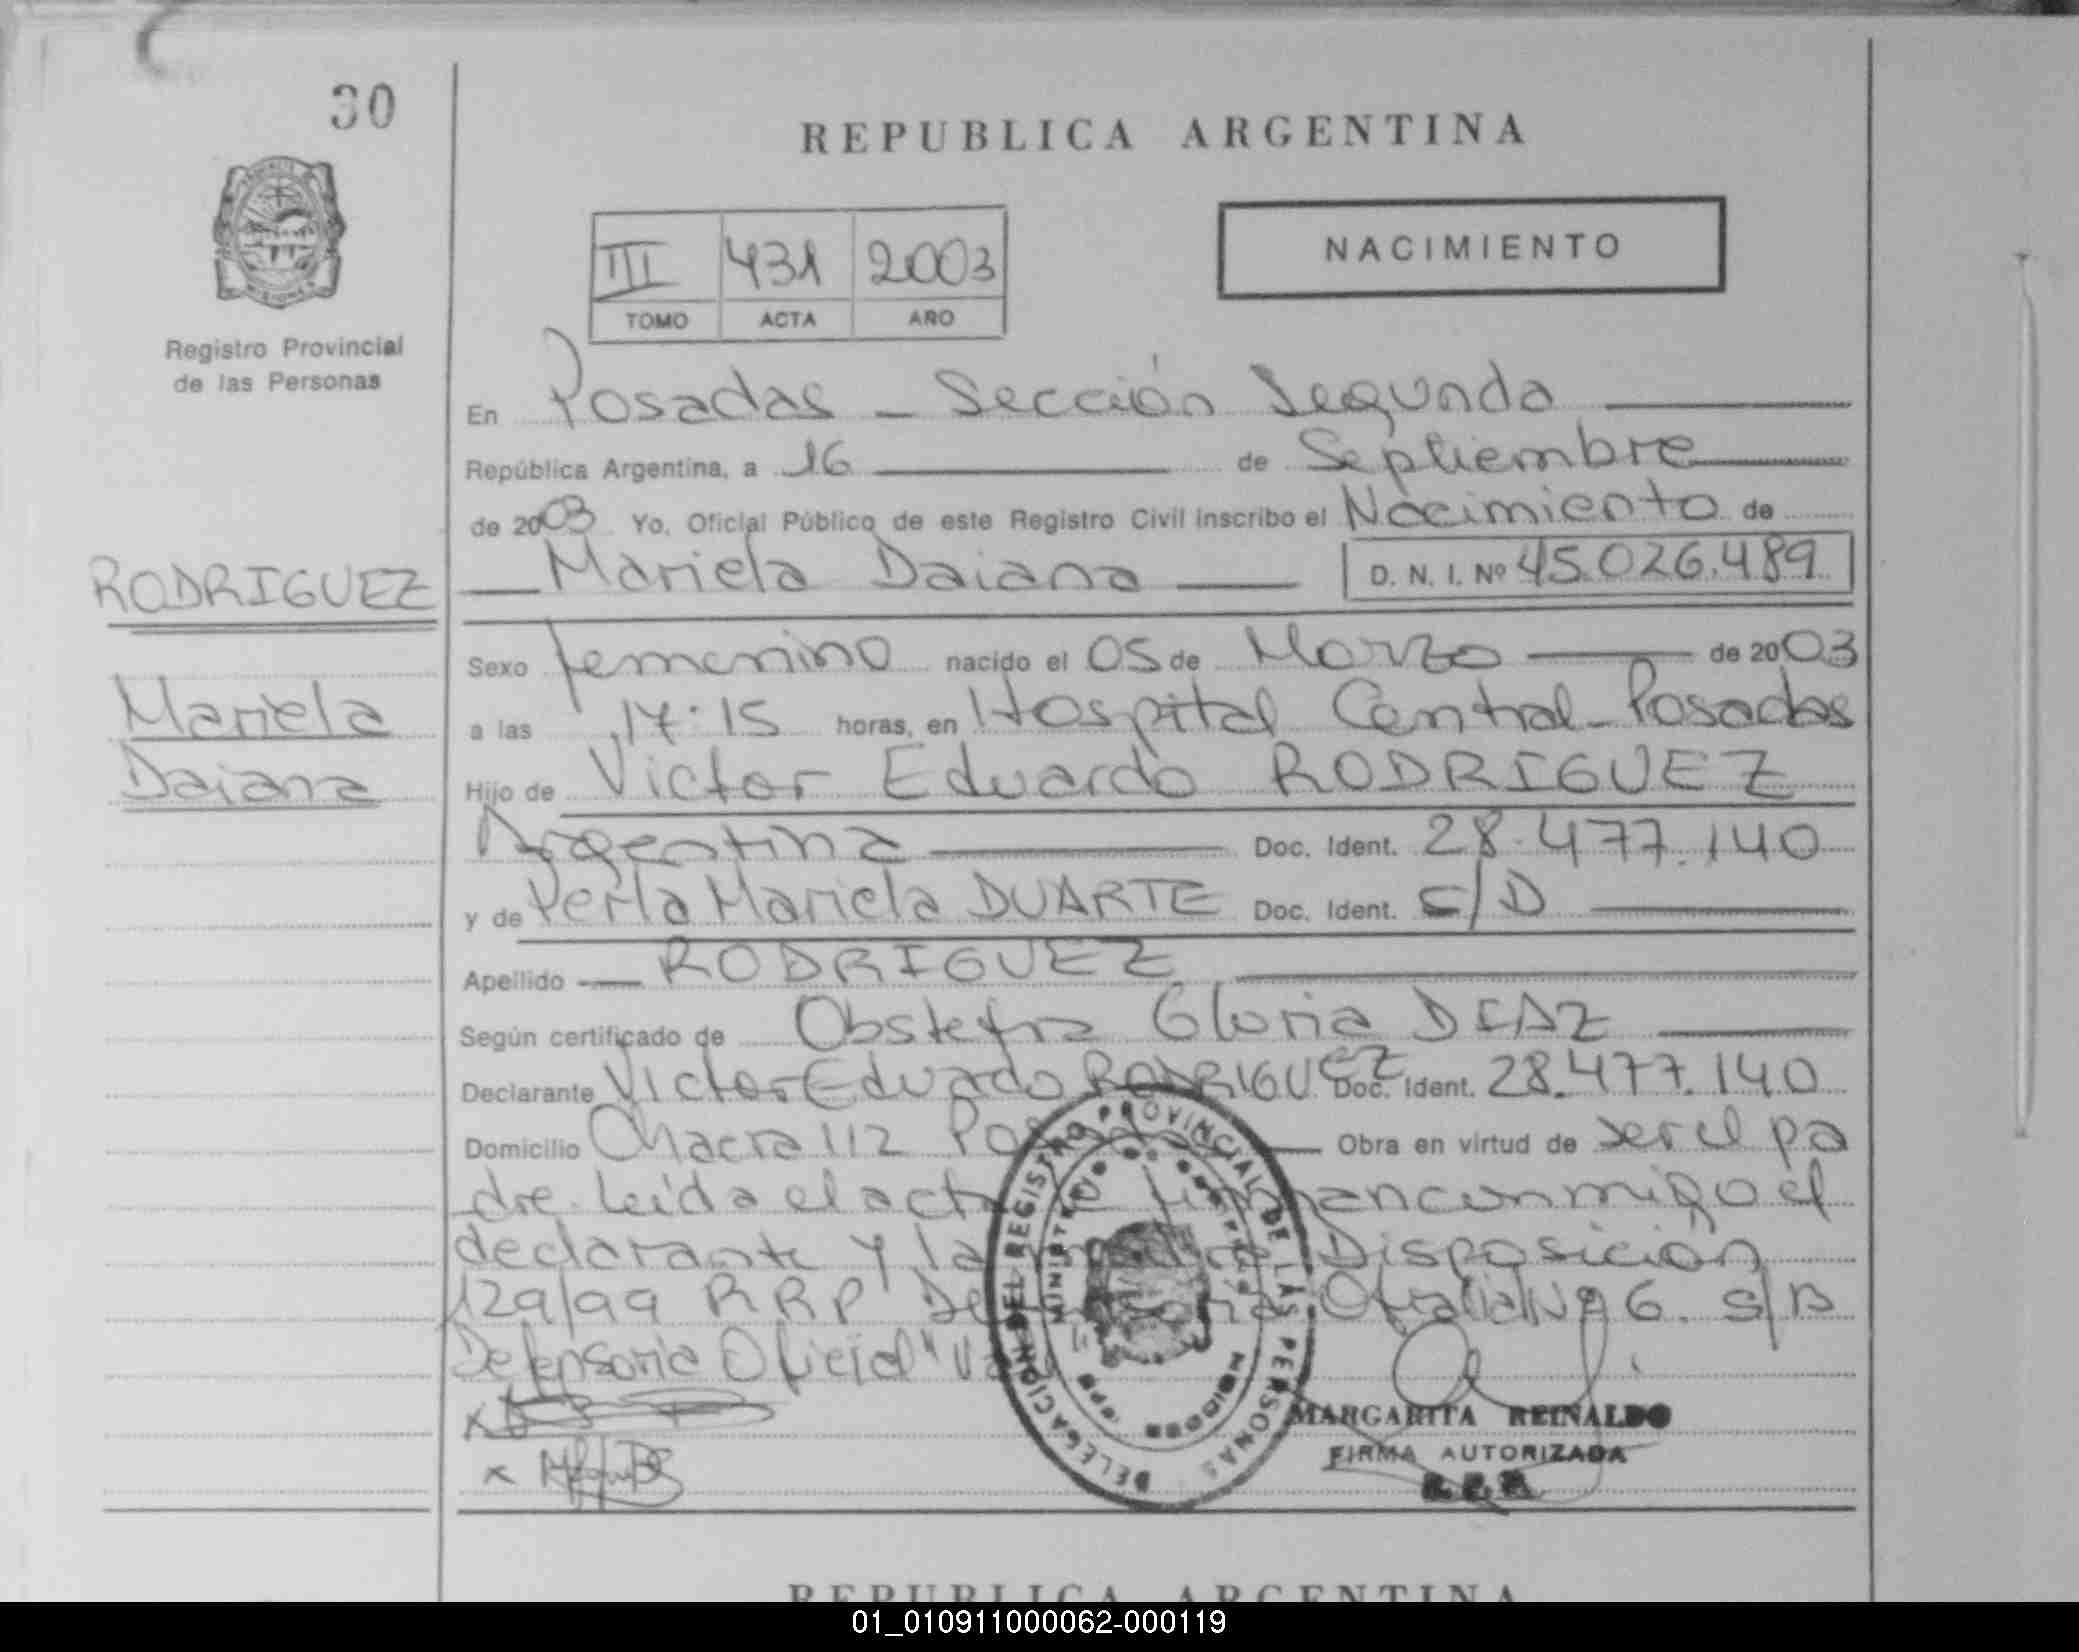 30
REPUBLICA ARGENTINA
NACIMIENTO
III 431 2003
TOMO ACTA AÑO
Registro Provincial
de las Personas
En Posadas - Sección Segunda
República Argentina, a 16 de Septiembre
de 2003 Yo, Oficial Público de este Registro Civil inscribo el Nacimiento de
RODRIGUEZ
Mariela Daiana D. N. I. Nº 45.026.489
Sexo femenino nacido el 05 de Marzo de 2003
Mariela
a las 17:15 horas, en Hospital Central - Posadas
Daiana
Hijo de Victor Eduardo RODRIGUEZ
Argentina Doc. Ident. 28.477.140
y de Perla Mariela DUARTE Doc. Ident. S/D
Apellido RODRIGUEZ
Según certificado de Obstetra Gloria DIAZ
Declarante Victor Eduardo RODRIGUEZ Doc. Ident. 28.477.140
Domicilio Chacra 112 Posadas Obra en virtud de ser el pa
dre. Leida el acta firman conmigo el
declarante y la Disposición
129/99 RRP Defensoria Oficial Nº 6. S/B
Defensoria Oficial
DELEGACION DEL REGISTRO PROVINCIAL DE LAS PERSONAS
MINISTERIO DE GOBIERNO
MISIONES
MARGARITA REINALDO
FIRMA AUTORIZADA
R.P.P.
REPUBLICA ARGENTINA
01_010911000062-000119